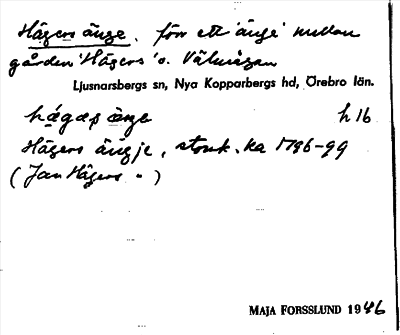 Hägers änge. förr ett 'änge' mellan
gården 'Hägers' o. Välmågan
Ljusnarsbergs sn, Nya Kopparbergs hd, Örebro län.
hǟgæṣ änge h 16
Hägers ängje, stork. ka 1796-99
(Jan Hägers " )
MAJA FORSSLUND 1946